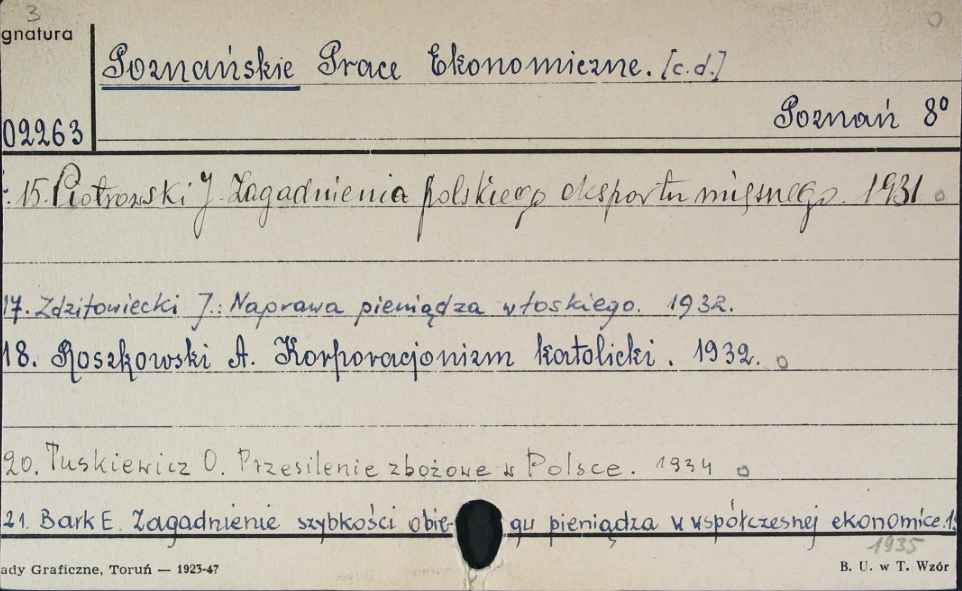 3
gnatura
Poznańskie Prace Ekonomiczne. [c.d.]
02263
Poznań 8°
: 15. Piotrowski J. Zagadnienia polskiego eksportu mięsnego. 1931
17. Zdzitowiecki J.: Naprawa pieniądza włoskiego. 1932.
18. Roszkowski A. Korporacjonizm katolicki. 1932.
20. Tuskiewicz O. Przesilenie zbożowe w Polsce. 1934
21. Bark E. Zagadnienie szybkości obie- gu pieniądza w współczesnej ekonomice. 19
1935
ady Graficzne, Toruń — 1923-47
B. U. w T. Wzór